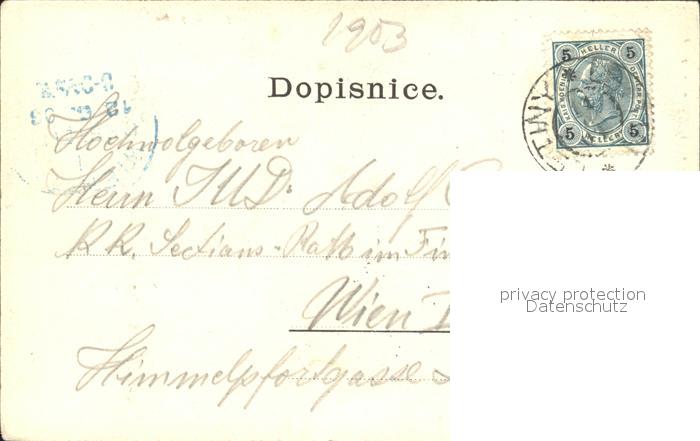 1903
5 HELLER 5
5 HELLER 5
Dopisnice.
Hochwolgeboren
Herrn JUDr Adolf
KK. Sections-Rath im Fin
Wien I
Himmelpfortgasse
privacy protection
Datenschutz